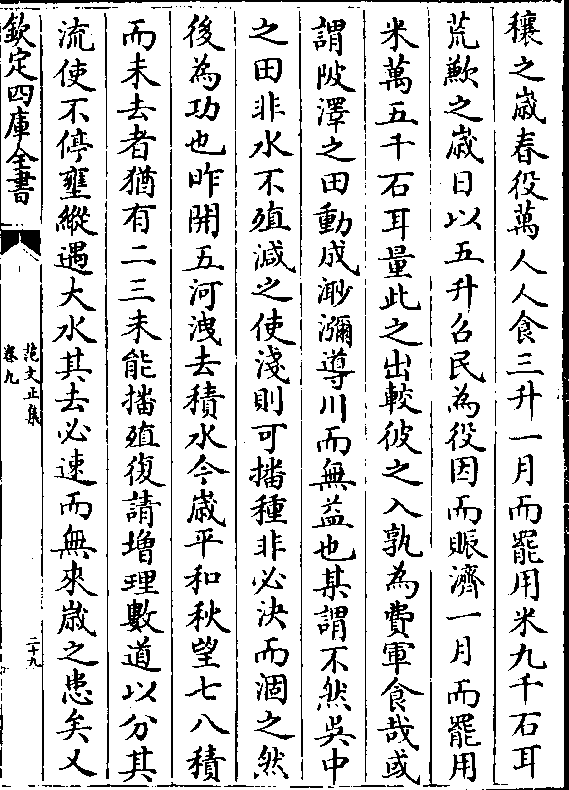 穰之嵗春役萬人人食三升一月而罷用米九千石耳
荒歉之嵗日以五升召民為役因而賑濟一月而罷用
米萬五千石耳量此之出較彼之入孰為費軍食哉或
謂陂澤之田動成渺瀰導川而無益也某謂不然吳中
之田非水不殖減之使淺則可播種非必決而涸之然
後為功也昨開五河洩去積水今嵗平和秋望七八積
而未去者猶有二三未能播殖復請增理數道以分其
流使不停壅縱遇大水其去必速而無來嵗之患矣又
欽定四庫全書
范文正集
卷九
二十九